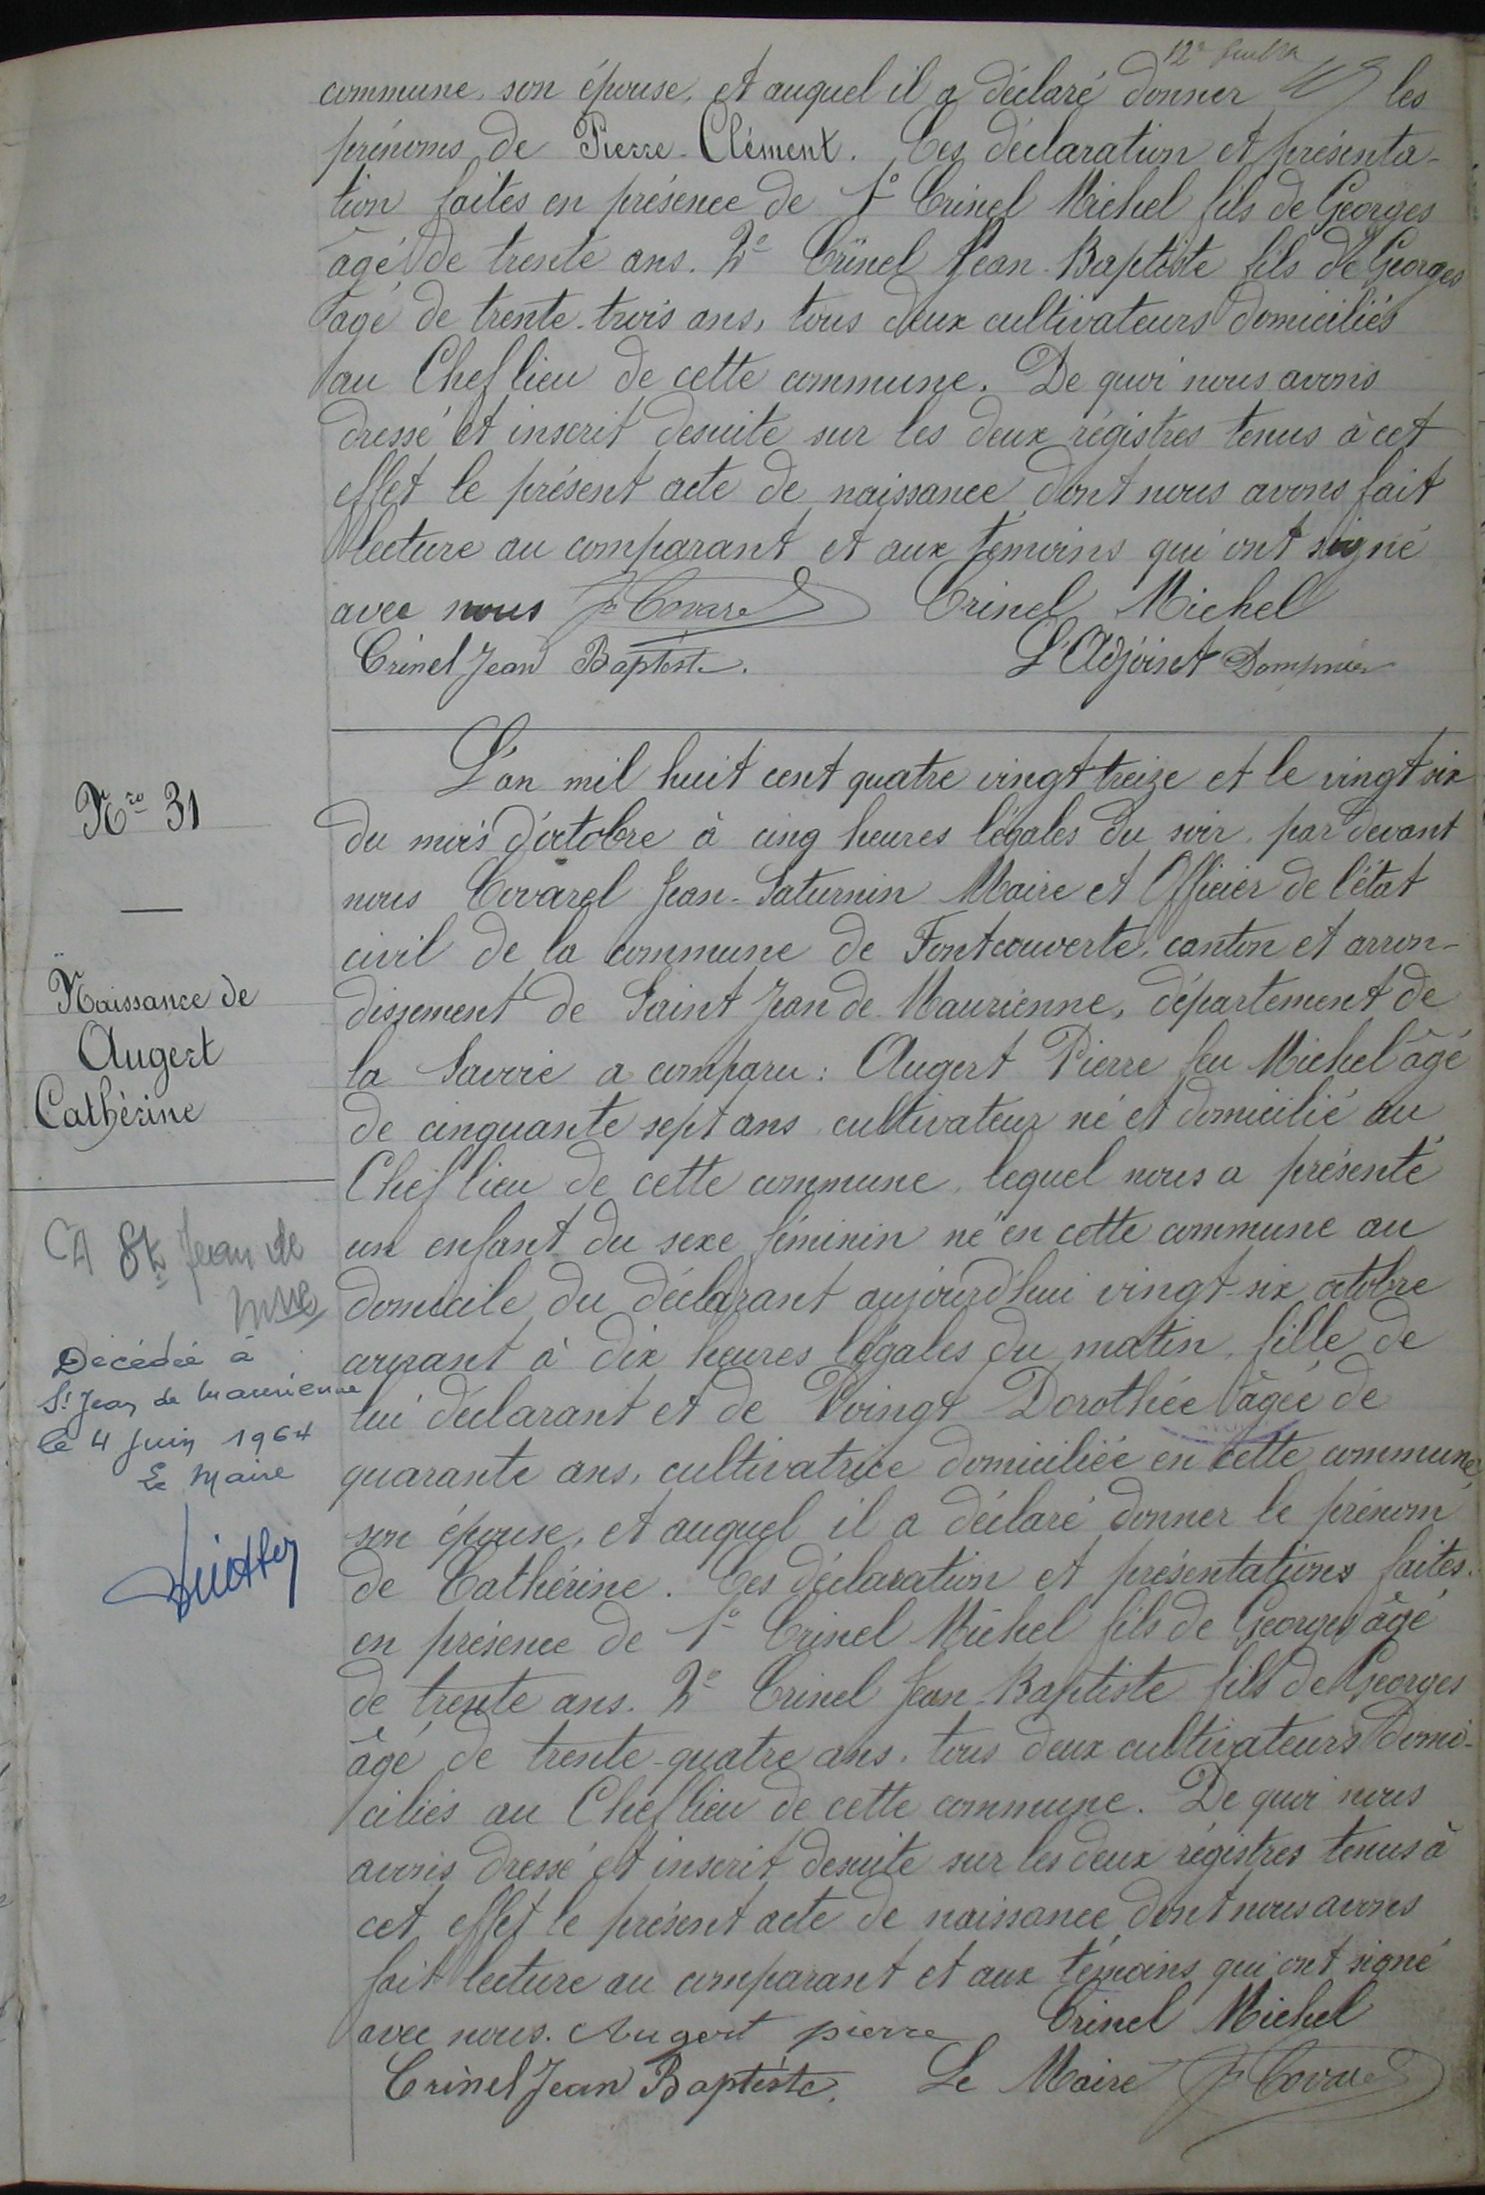 12e feuillet
commune, son épouse, et auquel il a déclaré donner les
prénoms de Pierre-Clément. Ces déclaration et présenta-
tion faites en présence de 1° Crinel Michel fils de Georges
âgé de trente ans. 2° Crinel Jean-Baptiste fils de Georges
âgé de trente-trois ans, tous deux cultivateurs domiciliés
au Chef lieu de cette commune. De quoi nous avons
dressé et inscrit desuite sur les deux régistres tenus à cet
effet le présent acte de naissance dont nous avons fait
lecture au comparant et aux témoins qui ont signé
avec nous J Covarel Crinel Michel
Crinel Jean Baptiste. L'Adjoint Dompnier
Nro 31
Naissance de
Augert
Cathérine
A St Jean de
Mne
Décédée à
St Jean de Maurienne
le 4 Juin 1964
Le Maire
L'an mil huit cent quatre vingt treize et le vingt six
du mois d'octobre à cinq heures légales du soir, par devant
nous Covarel Jean-Saturnin Maire et Officier de l'état
civil de la commune de Fontcouverte, canton et arron-
dissement de Saint Jean de Maurienne, département de
la Savoie a comparu: Augert Pierre feu Michel âgé
de cinquante sept ans cultivateur né et domicilié au
Chef lieu de cette commune, lequel nous a présenté
un enfant du sexe féminin né en cette commune au
domicile du déclarant aujourd'hui vingt-six octobre
courant à dix heures légales du matin, fille de
lui déclarant et de Voingt Dorothée âgée de
quarante ans, cultivatrice domiciliée en cette commune,
son épouse, et auquel il a déclaré donner le prénom
de Cathérine. Ces déclaration et présentations faites
en présence de 1° Crinel Michel fils de Georges âgé
de trente ans. 2° Crinel Jean-Baptiste fils de Georges
âgé de trente-quatre ans, tous deux cultivateurs domi-
ciliés au Chef lieu de cette commune. De quoi nous
avons dressé et inscrit desuite sur les deux régistres tenus à
cet effet le présent acte de naissance dont nous avons
fait lecture au comparant et aux témoins qui ont signé
avec nous. Augert pierre Crinel Michel
Crinel Jean Baptiste. Le Maire J Covarel